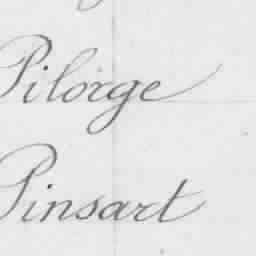 Pilorge
Pinsart